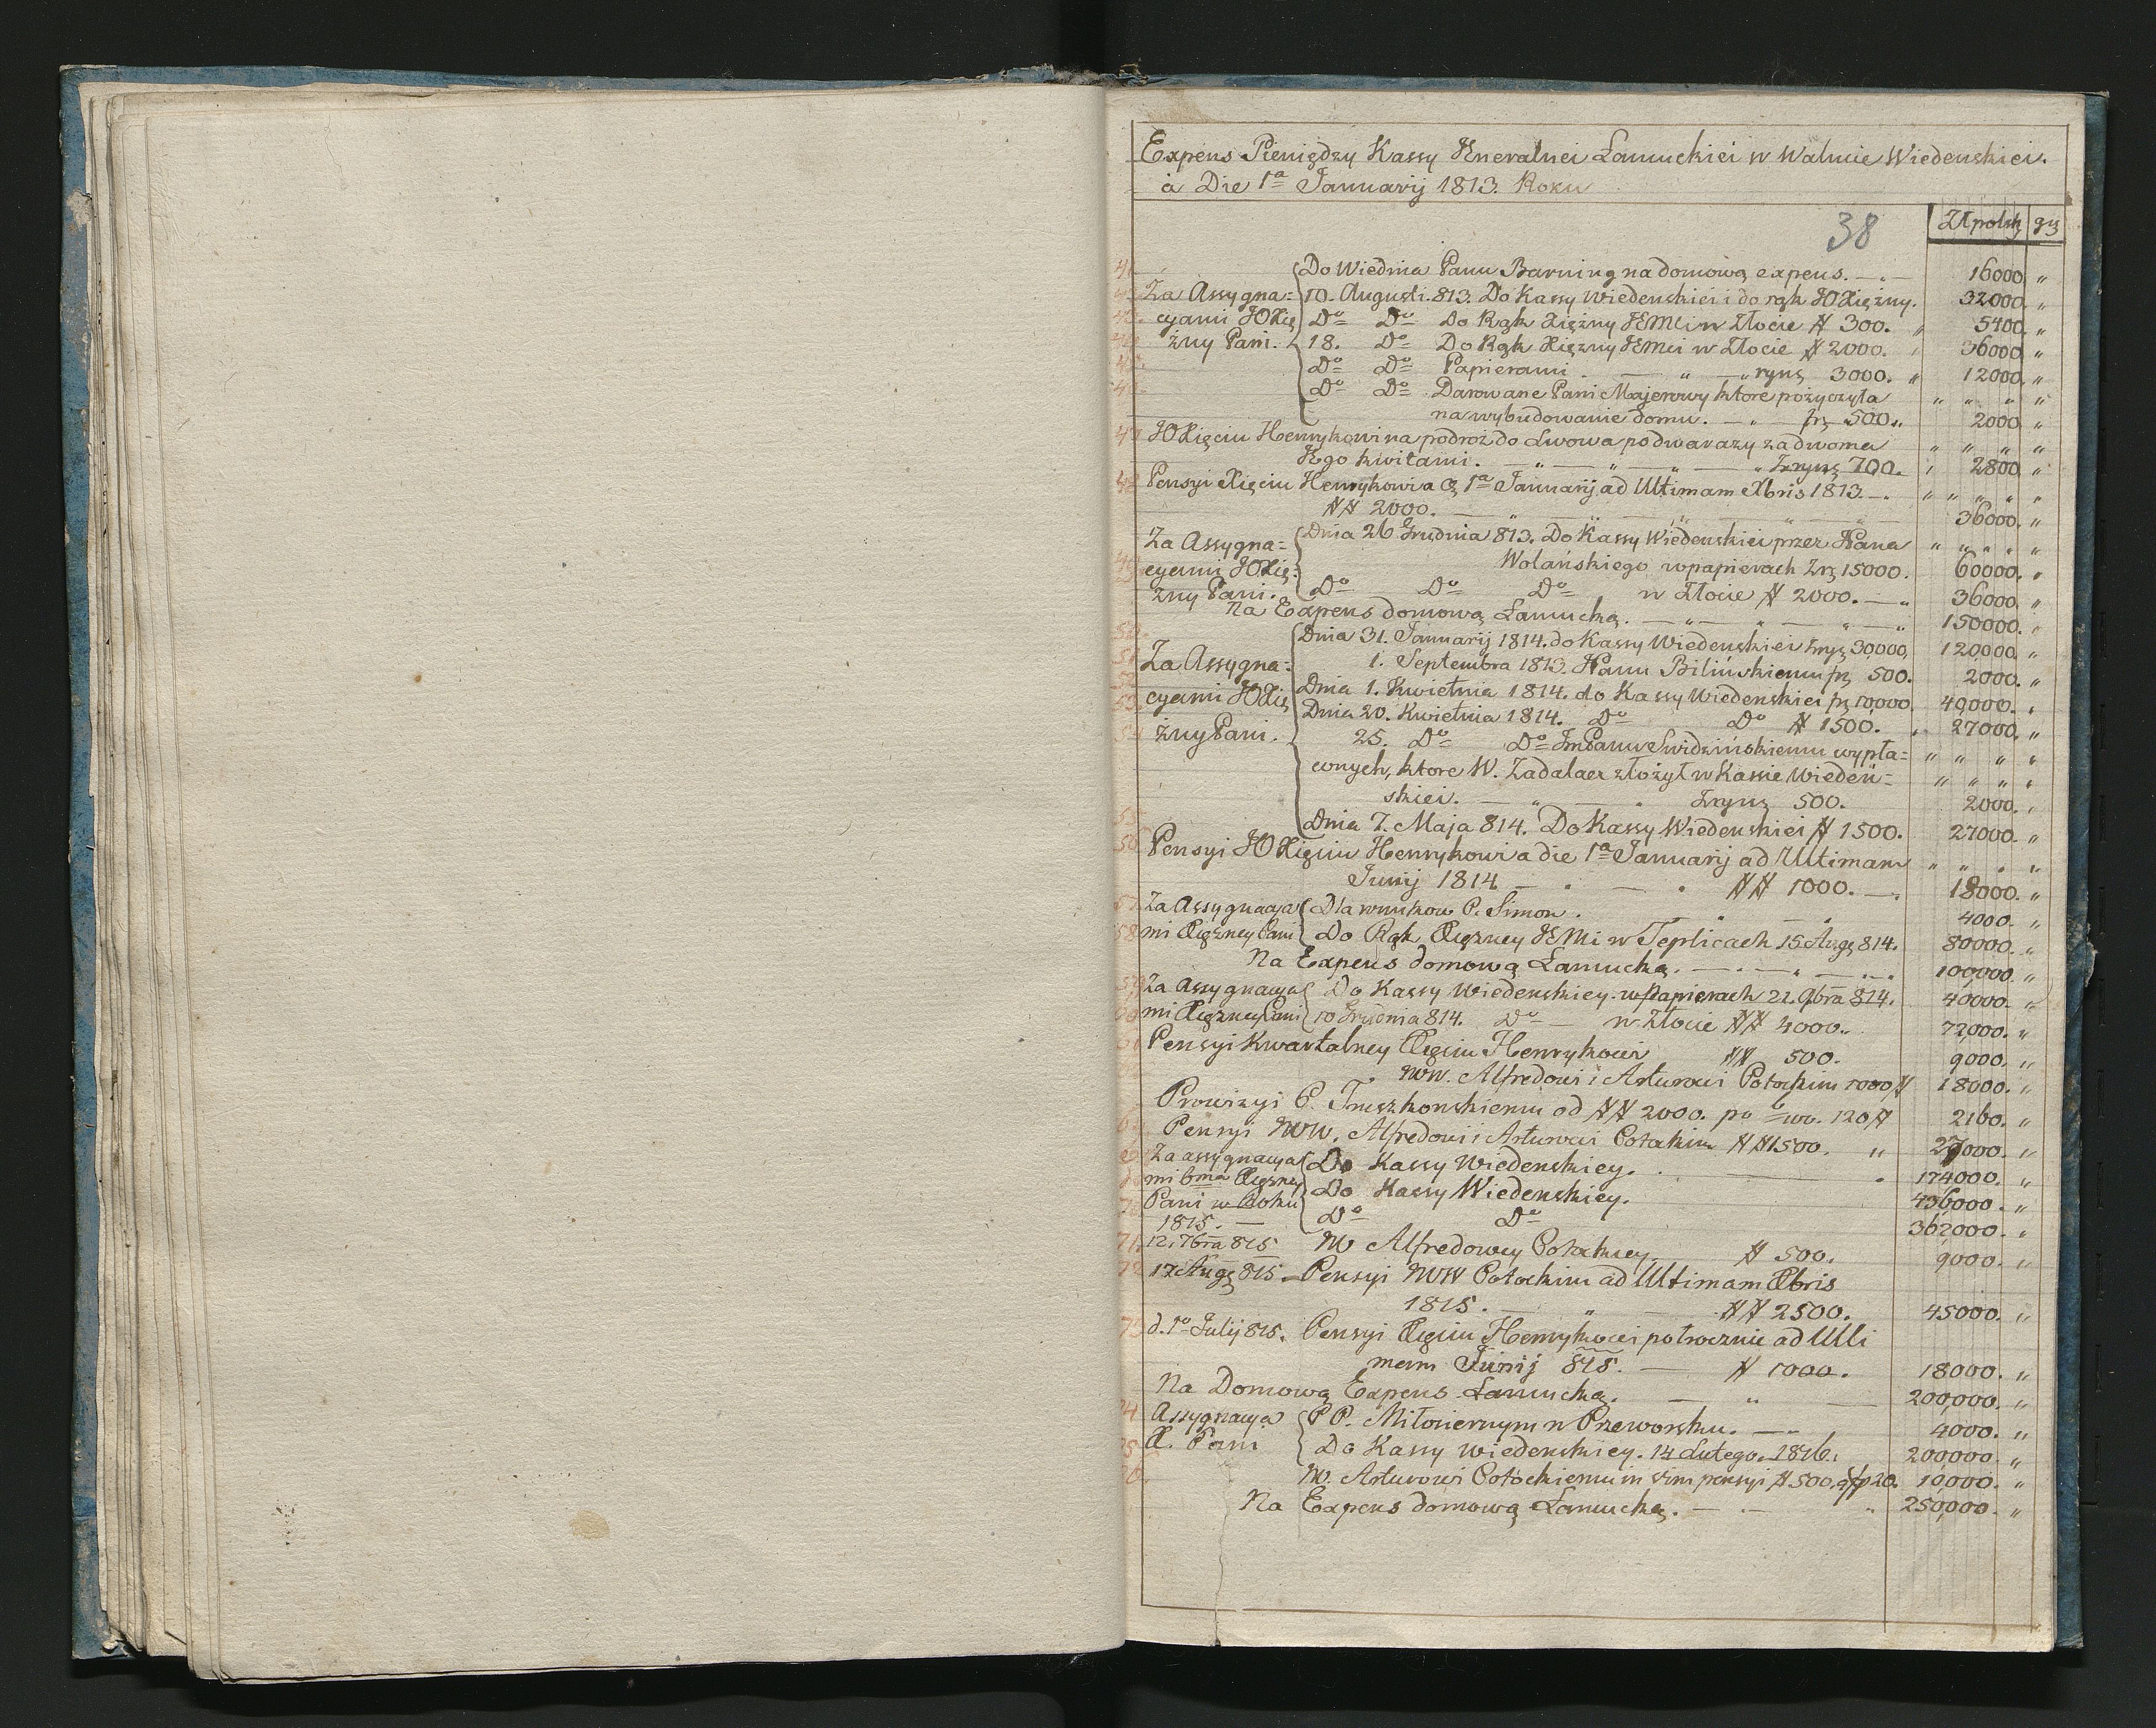 Expens Pieniędzy Kassy Jeneralnei Łancuckiei w Walucie Wiedenskiei.
a Die 1ª Januarij 1813. Roku
38
Zł polsk gr
41. Do Wiednia Panu Barning na domową expens. 16000 "
Za Assygna= 10. Augusti. 813. Do Kassy Wiedenskiei i do rąk JOXiężny. 32000 "
cyami JOXię Do Do Do Rąk Xiężny JEMci w Złocie # 300. " 5400 "
żny Pani. 18. Do Do Rąk Xiężny JEMci w Złocie # 2000. 36000 "
Do Do Papierami " ryng 3000. " 12000 "
Do Do Darowane Pani Majerowy ktore pożyczyła " " " "
na wybudowanie domu. fr 500. " 2000 "
47 JOXięciu Henrykowi na podroż do Lwowa po dwa razy za dwoma " " " "
Jego kwitami. " " " " Zryng 700. " 2800 "
48 Pensyi Xięciu Henrykowi a 1ª Januarij ad Ultimam Xbris 1813. " " " "
## 2000. " " " 36000. "
Za Assygna= Dnia 26 Grudnia 813. Do Kassy Wiedenskiei przez JPana " " " "
49 cyami JOXię= Wolańskiego w papierach Zrg 15000. 60000. "
żny Pani. Do Do Do w Złocie # 2000. " 36000. "
Na Expens domową Łancucką. " " " " 150000. "
Dnia 31. Januarij 1814. do Kassy Wiedenskiei Zryg 30,000, 120,000 "
51 Za Assygna= 1. Septembra 1813. JPanu Bilińskiemu fr 500. 2000. "
53. cyami JOXię Dnia 1. Kwietnia 1814. do Kassy Wiedenskiei fr 10000, 40,000. "
Dnia 20. Kwietnia 1814. Do Do # 1500. " 27000. "
54 żny Pani. 25. Do Do JmPanu Swidzińskiemu wypła= " " " "
conych, ktore W. Zadalaer złożył w Kassie Wiedeń= " " " "
skiei. " " Zryng 500. 2000. "
55 Dnia 7. Maja 814. Do Kassy Wiedenskiei # 1500. 27000. "
56 Pensyi JOXięciu Henrykowi a die 1ª Januarij ad Ultimam " " " "
Junij 1814 " " ## 1000. 18000. "
57. Za Assygnacya Dla wnukow P. Simon. 4000. "
58 mi Xiężney Pani Do Rąk Xiężney JEMci w Teplicach 15. Aug 814. 80000. "
Na Expens domową Łancucką. " " " 100,000 "
59 Za Assygnacya Do Kassy Wiedenskiey w papierach 21. 9bra 814. 40000. "
60 mi Xiężney Pani 10 Grudnia 814. Do w Złocie ## 4000. 72,000. "
61 Pensyi Kwartalney Xięciu Henrykowi ## 500. 9000. "
WW. Alfredowi i Arturowi Potockim 1000 # 18000. "
Prowizyi P. Truszkowskiemu od ## 2000. 120 # 2160. "
Pensyi WW. Alfredowi i Arturowi Potockim ## 1500. " 27000. "
Za assygnacya Do Kassy Wiedenskiey. 174000. "
mi 6ma Xiężney Do Kassy Wiedenskiey. 436000. "
Pani w Roku Do Do 362000. "
1815.
71. 12. 7bra 815 W Alfredowey Potockiey. # 500. 9000. "
72 17 Aug 815. Pensyi WW Potockim ad Ultimam Xbris
1815. " ## 2500. 45000. "
73 d. 1o July 815. Pensyi Xięciu Henrykowi połrocznie ad Ulti
mam Junij 815. # 1000. 18000. "
Na Domową Expens Łancucką. " 200,000. "
74 Assygnacya P P. Miłosiernym w Przeworsku. 4000. "
75 X. Pani Do Kassy Wiedenskiey. 14 Lutego. 1816. 200,000. "
W. Arturowi Potockiemu in vim pensyi # 500. a fp 20. 10,000. "
Na Expens domową Łancucką. " 250,000. "